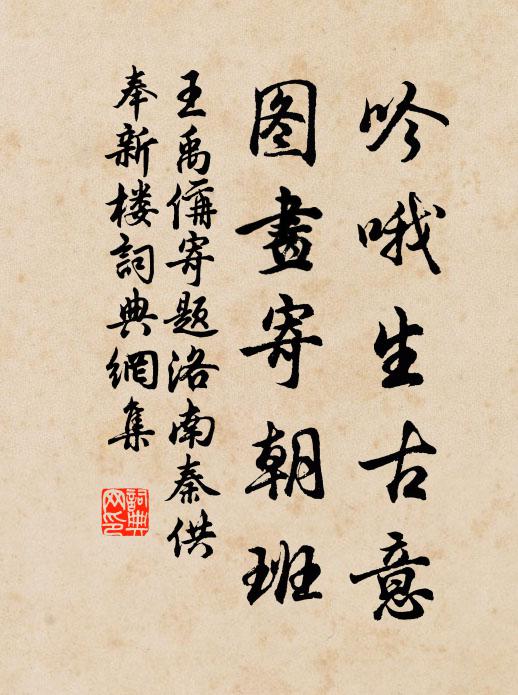 吟哦生古意
图畫寄朝班
王禹偁寄题洛南秦供
奉新楼詞典網集
詞典网印